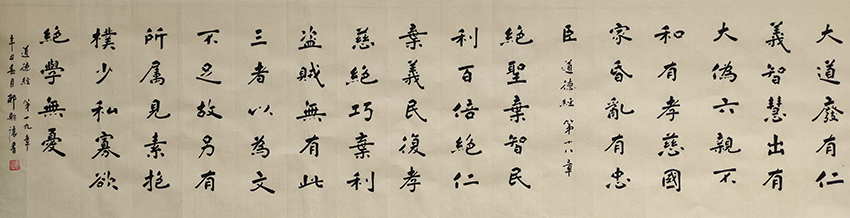 大道廢有仁
義智慧出有
大偽六親不
和有孝慈國
家昏亂有忠
臣 道德經 第十八章
絕聖棄智民
利百倍絕仁
棄義民復孝
慈絕巧棄利
盜賊無有此
三者以為文
不足故另有
所属見素抱
樸少私寡欲
絕學無憂
道德經 第十九章
辛丑春月 書